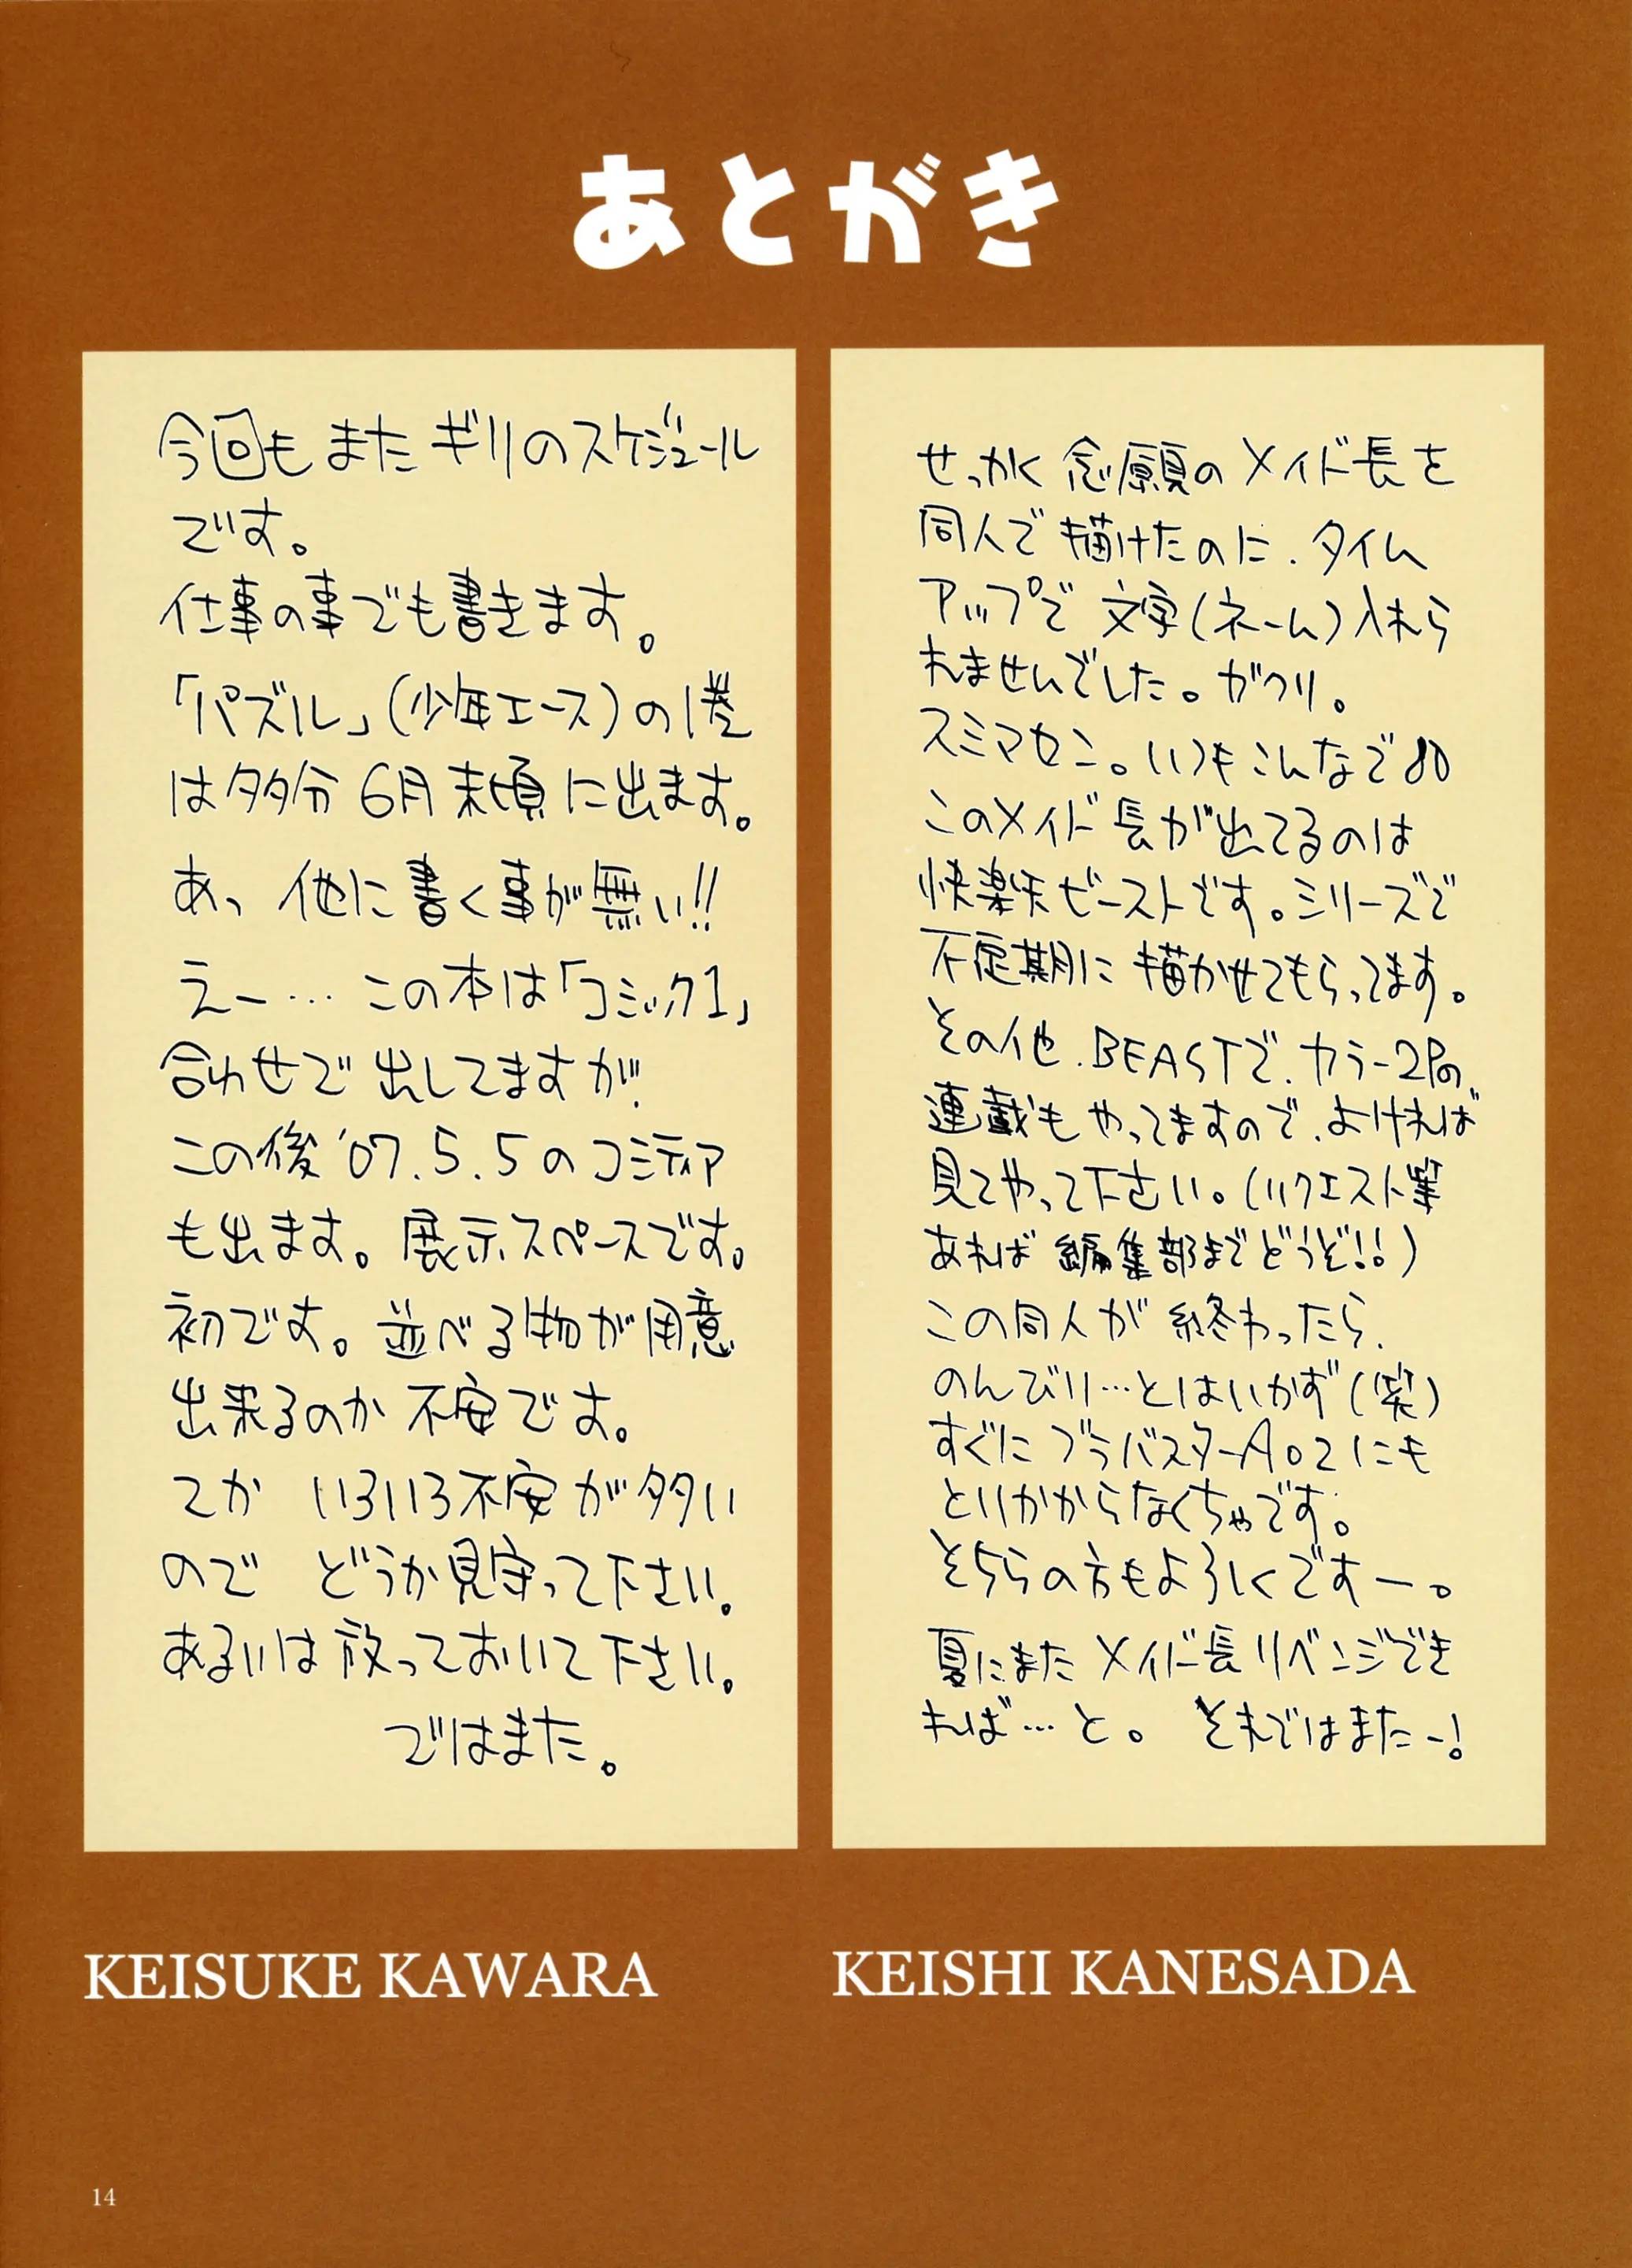 あとがき
今回もまたギリのスケジュール
です。
仕事の事でも書きます。
「パズル」(少年エース)の1巻
は多分6月末頃に出ます。
あ、他に書く事が無い!!
えー…この本は「コミック1」
合わせで出してますが、
この後'07.5.5のコミティア
も出ます。展示スペースです。
初です。並べる物が用意
出来るのか不安です。
てか いろいろ不安が多い
ので どうか見守って下さい。
あるいは放っておいて下さい。
ではまた。
KEISUKE KAWARA
せっかく念願のメイド長を
同人で描けたのに、タイム
アップで文字(ネーム)入れら
れませんでした。ガクリ。
スミマセン。いつもこんなで
このメイド長が出てるのは
快楽天ビーストです。シリーズで
不定期に描かせてもらってます。
その他、BEASTで、カラー2Pの、
連載もやってますので、よければ
見てやって下さい。(リクエスト等
あれば編集部までどうぞ!!)
この同人が終わったら、
のんびり…とはいかず(笑)
すぐにブラバスターA02にも
とりかからなくちゃです。
そちらの方もよろしくですー。
夏にまたメイド長リベンジでき
れば…と。 それではまたー!
KEISHI KANESADA
14